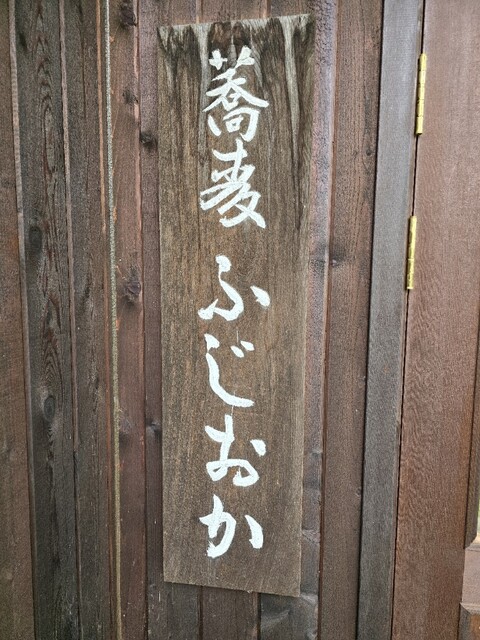 蕎麦 ふじおか